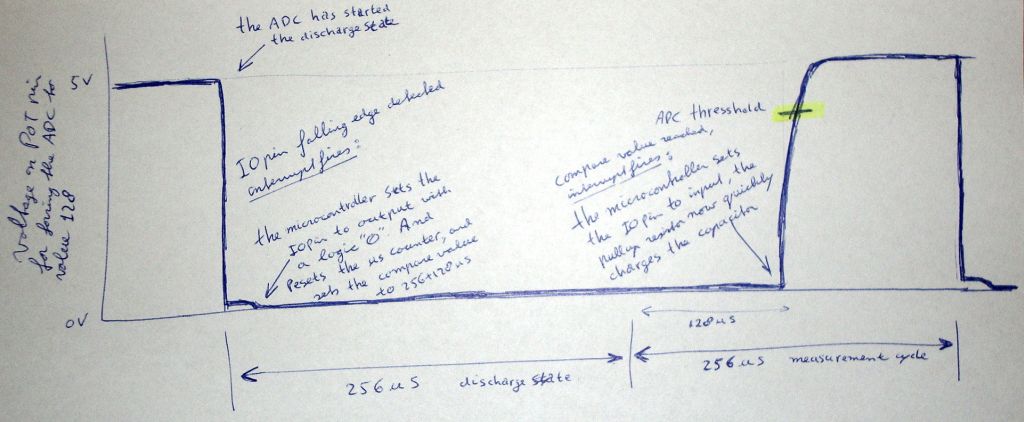 the ADC has started
the discharge state
5V
Voltage on POT pin
for forcing the ADC to
value 128
IO pin falling edge detected
interrupt fires:
the microcontroller sets the
IO pin to output with
a logic "0". And
resets the us counter, and
sets the compare value
to 256+128 us
ADC thresshold
compare value reached,
interrupt fires:
the microcontroller sets
the IO pin to input, the
pullup resistor now quickly
charges the capacitor
0V
128 us
256 us discharge state
256 us measurement cycle